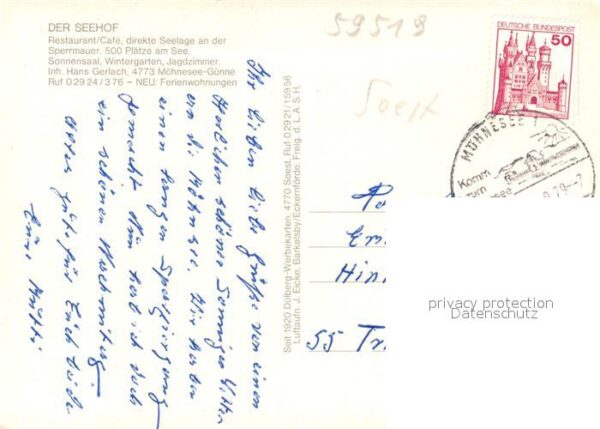 DER SEEHOF
Restaurant/Café, direkte Seelage an der
Sperrmauer. 500 Plätze am See.
Sonnensaal, Wintergarten, Jagdzimmer.
Inh. Hans Gerlach, 4773 Möhnesee-Günne
Ruf 02924/376 – NEU: Ferienwohnungen
59519
Soest
DEUTSCHE BUNDESPOST
50
MÖHNESEE 1
Komm
zum
see
9.79-7
Ihr lieben liebe Grüße von einem
herlichen schönen Sonnigen
an die Möhnesee. Wir haben
einen langen Spaziergang
gemacht
ein schönen Nachmittag
alles gute für Euch beide
Eure Mutti
Seit 1920 Dülberg-Werbekarten, 4770 Soest, Ruf 02921/15956
Luftaufn. J. Eicke, Barkelsby/Eckernförde. Freig. d. L.A.S.H.
Hin
55 Tr
privacy protection
Datenschutz